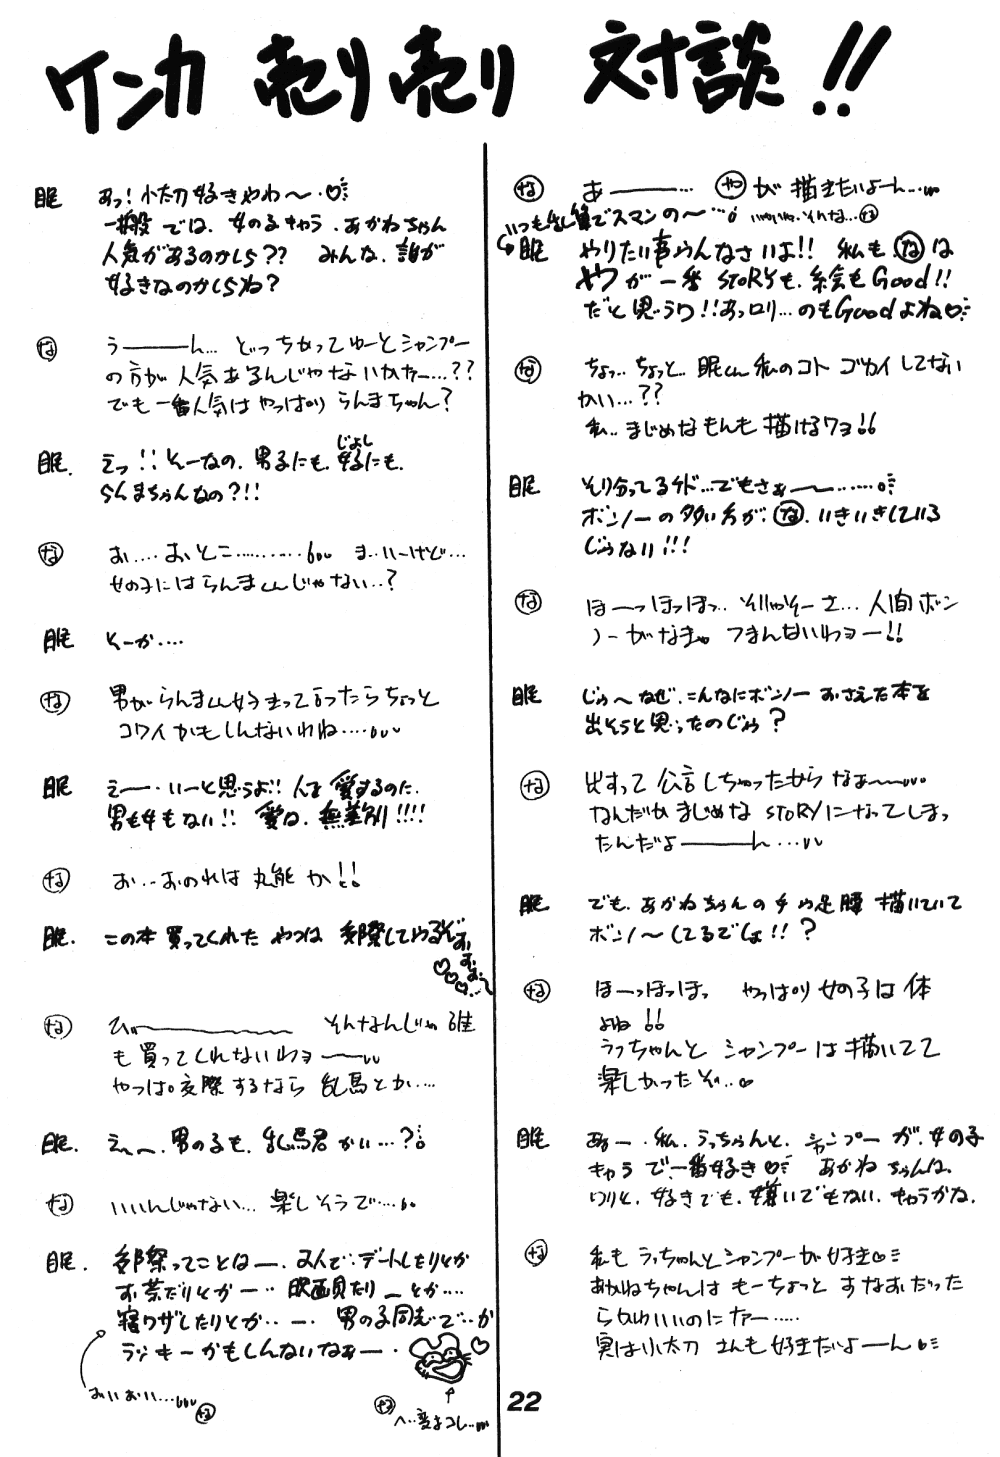 ケンカ売り売り 対談!!
眠 あっ!小太刀好きやわ〜・♡
一般では、女の子キャラ、あかねちゃん
人気があるのかしら?? みんな、誰が
好きなのかしらね?
な うーーーん… どっちかってゆーとシャンプー
の方が人気あるんじゃないかなー…??
でも一番人気はやっぱりらんまちゃん?
眠. えっ!!そーなの、男子にも、女子にも、
じょし
らんまちゃんなの?!!
な お‥‥おとこ………… ま‥いーけど…
女の子にはらんまくんじゃない‥?
眠 そーか‥‥
な 男がらんまくん好きって言ったらちょっと
コワイかもしんないわね‥‥
眠 えー・いーと思うよ!! 人を愛するのに、
男も女もない!! 愛は、無差別!!!!
な お‥‥おのれは丸能か!!
眠. この本買ってくれたやつは 交際してやるぞ
な ひぃーーーー そんなんじゃ誰
も買ってくれないわョーー
やっぱ。交際するなら 乱馬とか‥‥
眠. え〜〜、男の子も、乱馬君かい…?
な いいんじゃない… 楽しそうで…
眠. 交際ってことはー、2人で‥デートしたりとか
お茶だりとかー‥ 映画見たり_とか‥‥
寝ワザしたりとか‥ー・ 男の子同志で‥か
ラッキーかもしんないなぁー・・
おいおい… な
な へ‥変なコレ‥
な あーーー… やが描きたいよーん…
いつも乱筆でスマンの〜… いやいや、そんな… な
眠 やりたい事やんなさいよ!! 私もなは
やが一番 STORYも、絵もGood!!
だと思うワ!!あっロリ…のもGoodよね♡
な ちょっ‥ちょっと‥眠くん私のコト ゴカイしてない
かい…??
私‥まじめなもんも描けるワョ!!
眠 そりゃ分ってるケド…でもさぁー〜……
ボンノーの多い方が、な、いきいきしている
じゃない!!!
な ほーっほっほっ‥ そりゃそーさ… 人間ボン
ノーがなきゃ つまんないわョー!!
眠 じゃ〜なぜ、こんなにボンノーおさえた本を
出そうと思ったのじゃ?
な 出すって公言しちゃったから なぁ〜〜
なんだか まじめな STORYになってしまっ
たんだよーーーん…
眠 でも、あかねちゃんの手や足腰 描いていて
ボンノ〜してるでしょ!!?
な ほーっほっほっ やっぱり女の子は体
よね!!
うっちゃんと シャンプーは描いてて
楽しかったぞ…
眠 あぁー・私、うっちゃんと、シャンプーが、女の子
キャラで一番好き♡ あかねちゃんは、
わりと、好きでも、嫌いでもない、キャラかな、
な 私もうっちゃんとシャンプーが好き♡
あかねちゃんは もーちょっと すなおだった
らかわいいのにナー‥‥
実は小太刀さんも好きだよーん♡
22